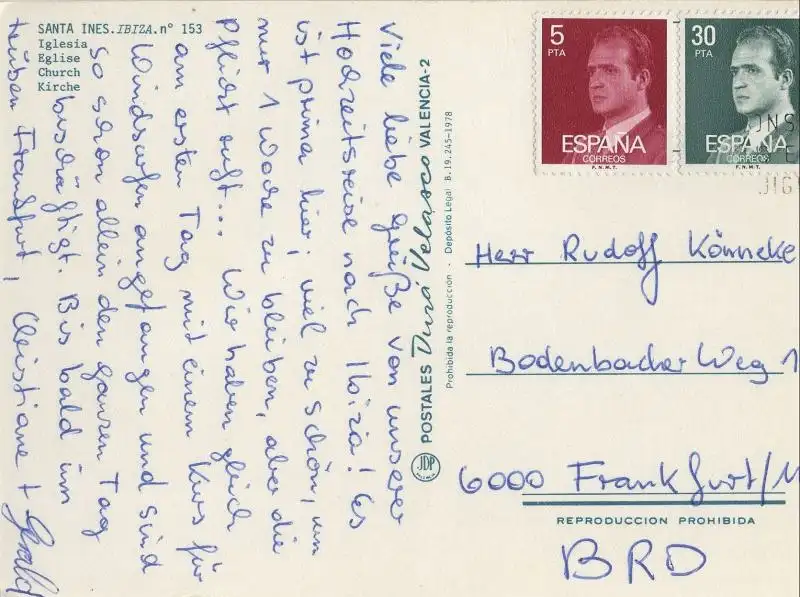 SANTA INES.IBIZA.nº 153
Iglesia
Eglise
Church
Kirche
Viele liebe Grüße von unserer
Hochzeitsreise nach Ibiza! Es
ist prima hier; viel zu schön, um
nur 1 Woche zu bleiben, aber die
Pflicht ruft... Wir haben gleich
am ersten Tag mit einem Kurs für
Windsurfen angefangen und sind
so schon allein den ganzen Tag
beschäftigt. Bis bald im
trüben Frankfurt, Christiane + Gerald
POSTALES Durá Velasco VALENCIA-2
Prohibida la reproducción · Depósito Legal B.19.245-1978
JDP
5
PTA
ESPAÑA
CORREOS
F.N.M.T.
30
PTA
ESPAÑA
CORREOS
F.N.M.T.
Herr Rudolf Könneke
Bodenbacher Weg 1
6000 Frankfurt/M
REPRODUCCION PROHIBIDA
BRD